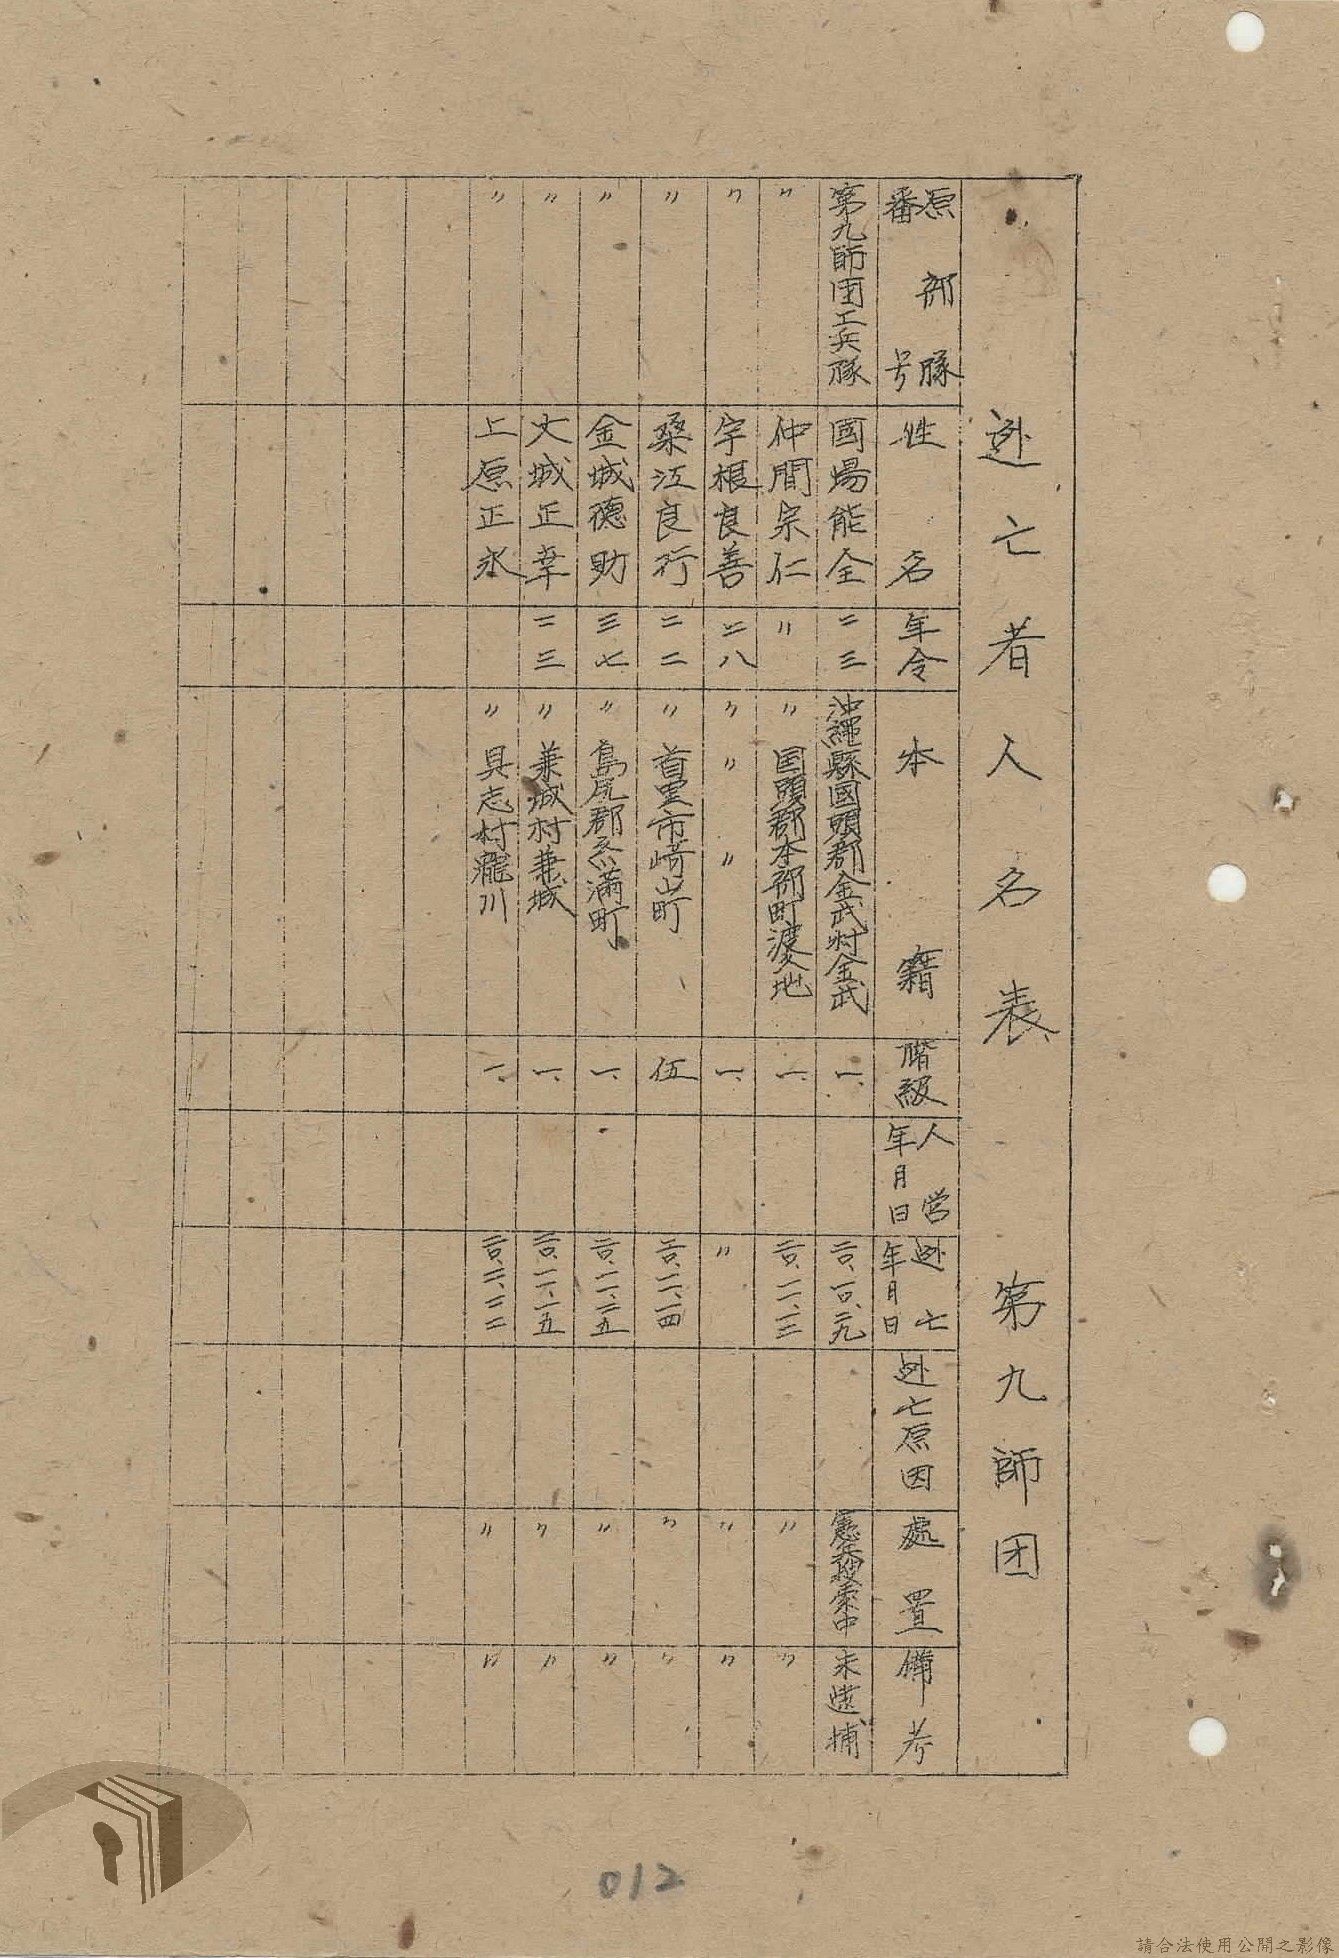 逃亡者人名表 第九師団
原部隊番号 姓名 年令 本籍 階級 入営年月日 逃亡年月日 逃亡原因 處置 備考
第九師団工兵隊 國場能全 二三 沖縄縣國頭郡金武村金武 一、 二〇、一〇、二九 憲兵捜索中 未逮捕
〃 仲間宗仁 〃 〃 国頭郡本部町渡久地 一、 二〇、一一、一二 〃 〃
〃 宇根良善 二八 〃 〃 〃 一、 〃 〃 〃
〃 桑江良行 二二 〃 首里市崎山町 伍 二〇、一一、一四 〃 〃
〃 金城德助 三七 〃 島尻郡糸満町 一、 二〇、一一、一五 〃 〃
〃 大城正幸 二三 〃 兼城村兼城 一、 二〇、一一、一五 〃 〃
〃 上原正永 〃 具志村瀧川 一、 〃 〃
012
請合法使用公開之影像